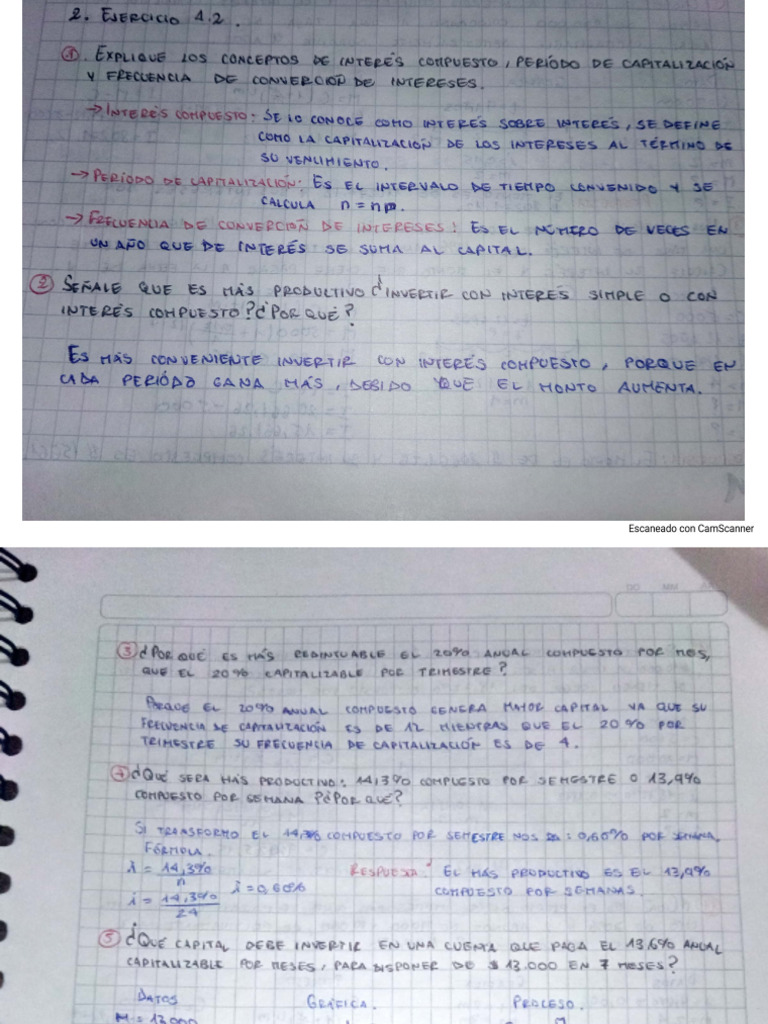 2. EJERCICIO 4.2.
① EXPLIQUE LOS CONCEPTOS DE INTERÉS COMPUESTO, PERÍODO DE CAPITALIZACIÓN
Y FRECUENCIA DE CONVERCIÓN DE INTERESES.
→ INTERÉS COMPUESTO: SE LO CONOCE COMO INTERÉS SOBRE INTERÉS, SE DEFINE
COMO LA CAPITALIZACIÓN DE LOS INTERESES AL TÉRMINO DE
SU VENCIMIENTO.
→ PERÍODO DE CAPITALIZACIÓN: ES EL INTERVALO DE TIEMPO CONVENIDO Y SE
CALCULA n = nm.
→ FRECUENCIA DE CONVERCIÓN DE INTERESES: ES EL NÚMERO DE VECES EN
UN AÑO QUE DE INTERÉS SE SUMA AL CAPITAL.
② SEÑALE QUE ES MÁS PRODUCTIVO ¿INVERTIR CON INTERÉS SIMPLE O CON
INTERÉS COMPUESTO? ¿POR QUÉ?
ES MÁS CONVENIENTE INVERTIR CON INTERÉS COMPUESTO, PORQUE EN
CADA PERIÓDO GANA MÁS, DEBIDO QUE EL MONTO AUMENTA.
Escaneado con CamScanner
DO MM
③ ¿POR QUÉ ES MÁS REDINTUABLE EL 20% ANUAL COMPUESTO POR MES,
QUE EL 20% CAPITALIZABLE POR TRIMESTRE?
PORQUE EL 20% ANUAL COMPUESTO GENERA MAYOR CAPITAL YA QUE SU
FRECUENCIA DE CAPITALIZACIÓN ES DE 12 MIENTRAS QUE EL 20% POR
TRIMESTRE SU FRECUENCIA DE CAPITALIZACIÓN ES DE 4.
④ ¿QUÉ SERA MÁS PRODUCTIVO: 14,3% COMPUESTO POR SEMESTRE O 13,9%
COMPUESTO POR SEMANA? ¿POR QUÉ?
SI TRANSFORMO EL 14,3% COMPUESTO POR SEMESTRE NOS DA: 0,60% POR SEMANA.
FÓRMULA.
i = 14,3% / n
RESPUESTA: EL MÁS PRODUCTIVO ES EL 13,9%
i = 0,60%
COMPUESTO POR SEMANAS.
i = 14,3% / 24
⑤ ¿QUÉ CAPITAL DEBE INVERTIR EN UNA CUENTA QUE PAGA EL 13,6% ANUAL
CAPITALIZABLE POR MESES, PARA DISPONER DE $ 13.000 EN 7 MESES?
DATOS GRÁFICA. PROCESO.
M = 13.000 M